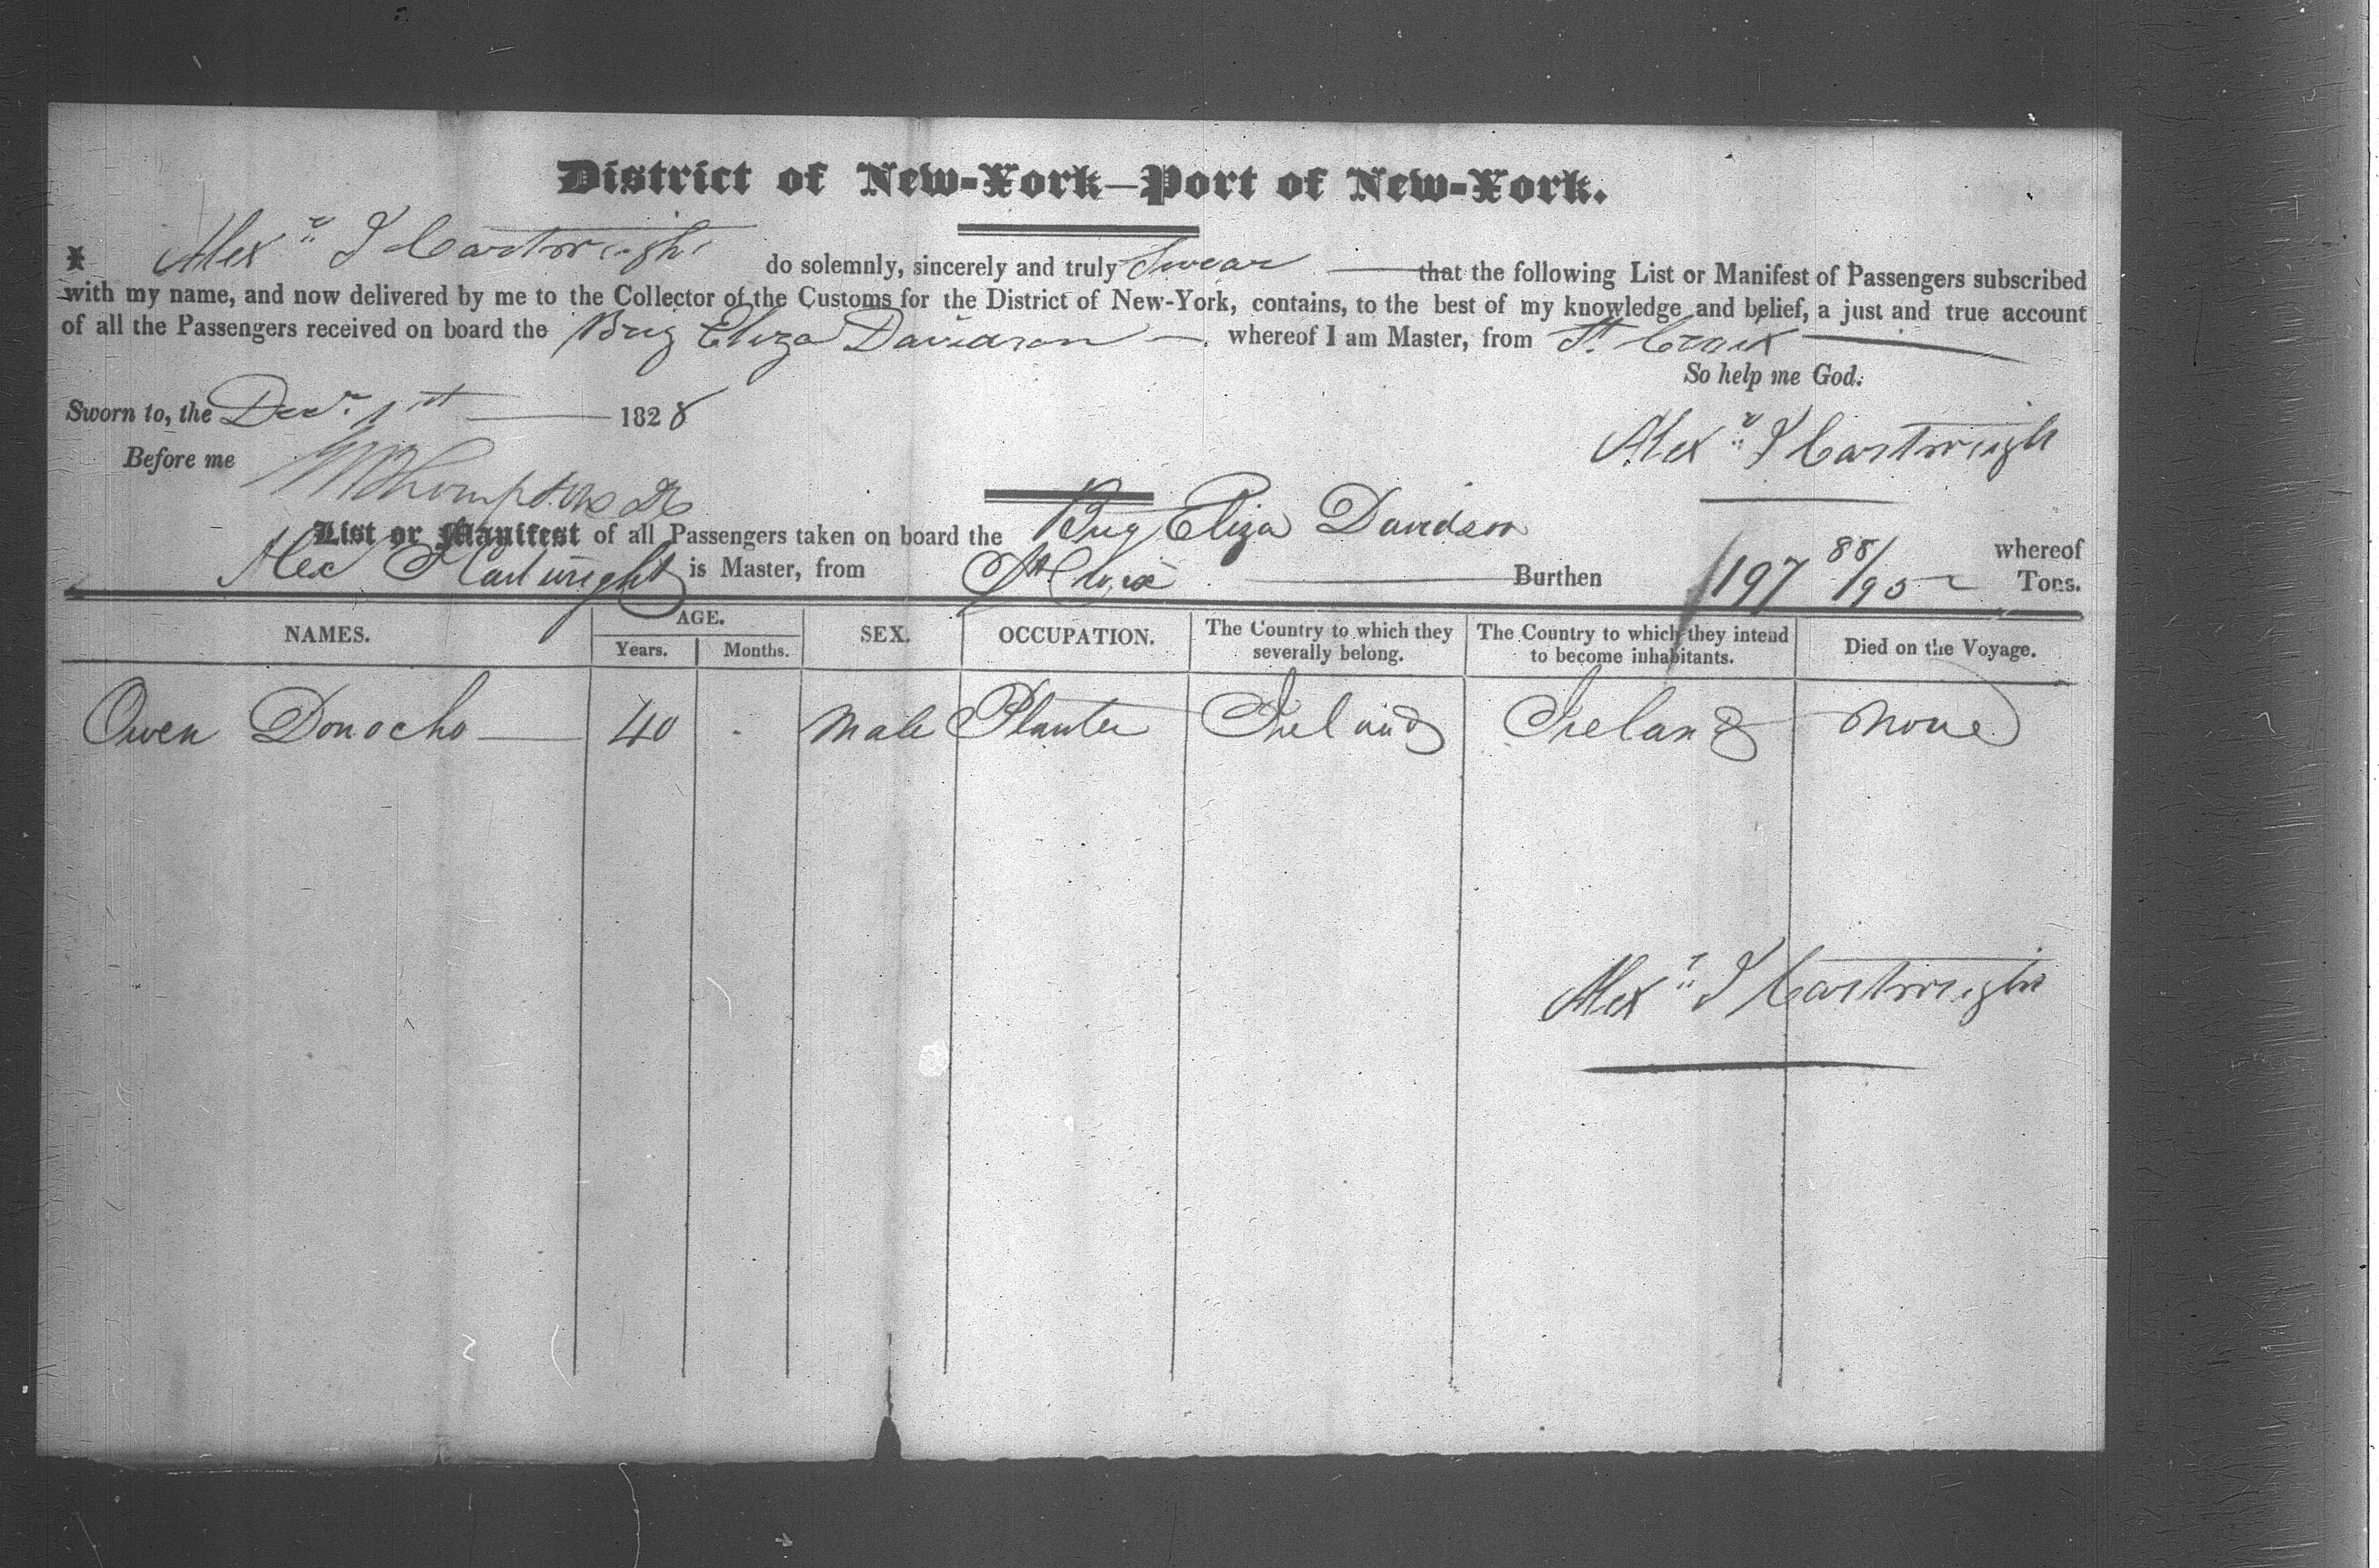 District of New-York—Port of New-York.
I Alexr J Cartwright do solemnly, sincerely and truly Swear that the following List or Manifest of Passengers subscribed
with my name, and now delivered by me to the Collector of the Customs for the District of New-York, contains, to the best of my knowledge and belief, a just and true account
of all the Passengers received on board the Brig Eliza Davidson whereof I am Master, from St. Croix
So help me God.
Sworn to, the Decr 1st 1828
Alexr J Cartwright
Before me Thompson
List or Manifest of all Passengers taken on board the Brig Eliza Davidson whereof
Alex J Cartwright is Master, from St Croix Burthen 197 88/95 Tons.
NAMES. AGE. Years. Months. SEX. OCCUPATION. The Country to which they severally belong. The Country to which they intend to become inhabitants. Died on the Voyage.
Owen Donocho 40 - Male Planter Ireland Ireland None
Alexr J Cartwright